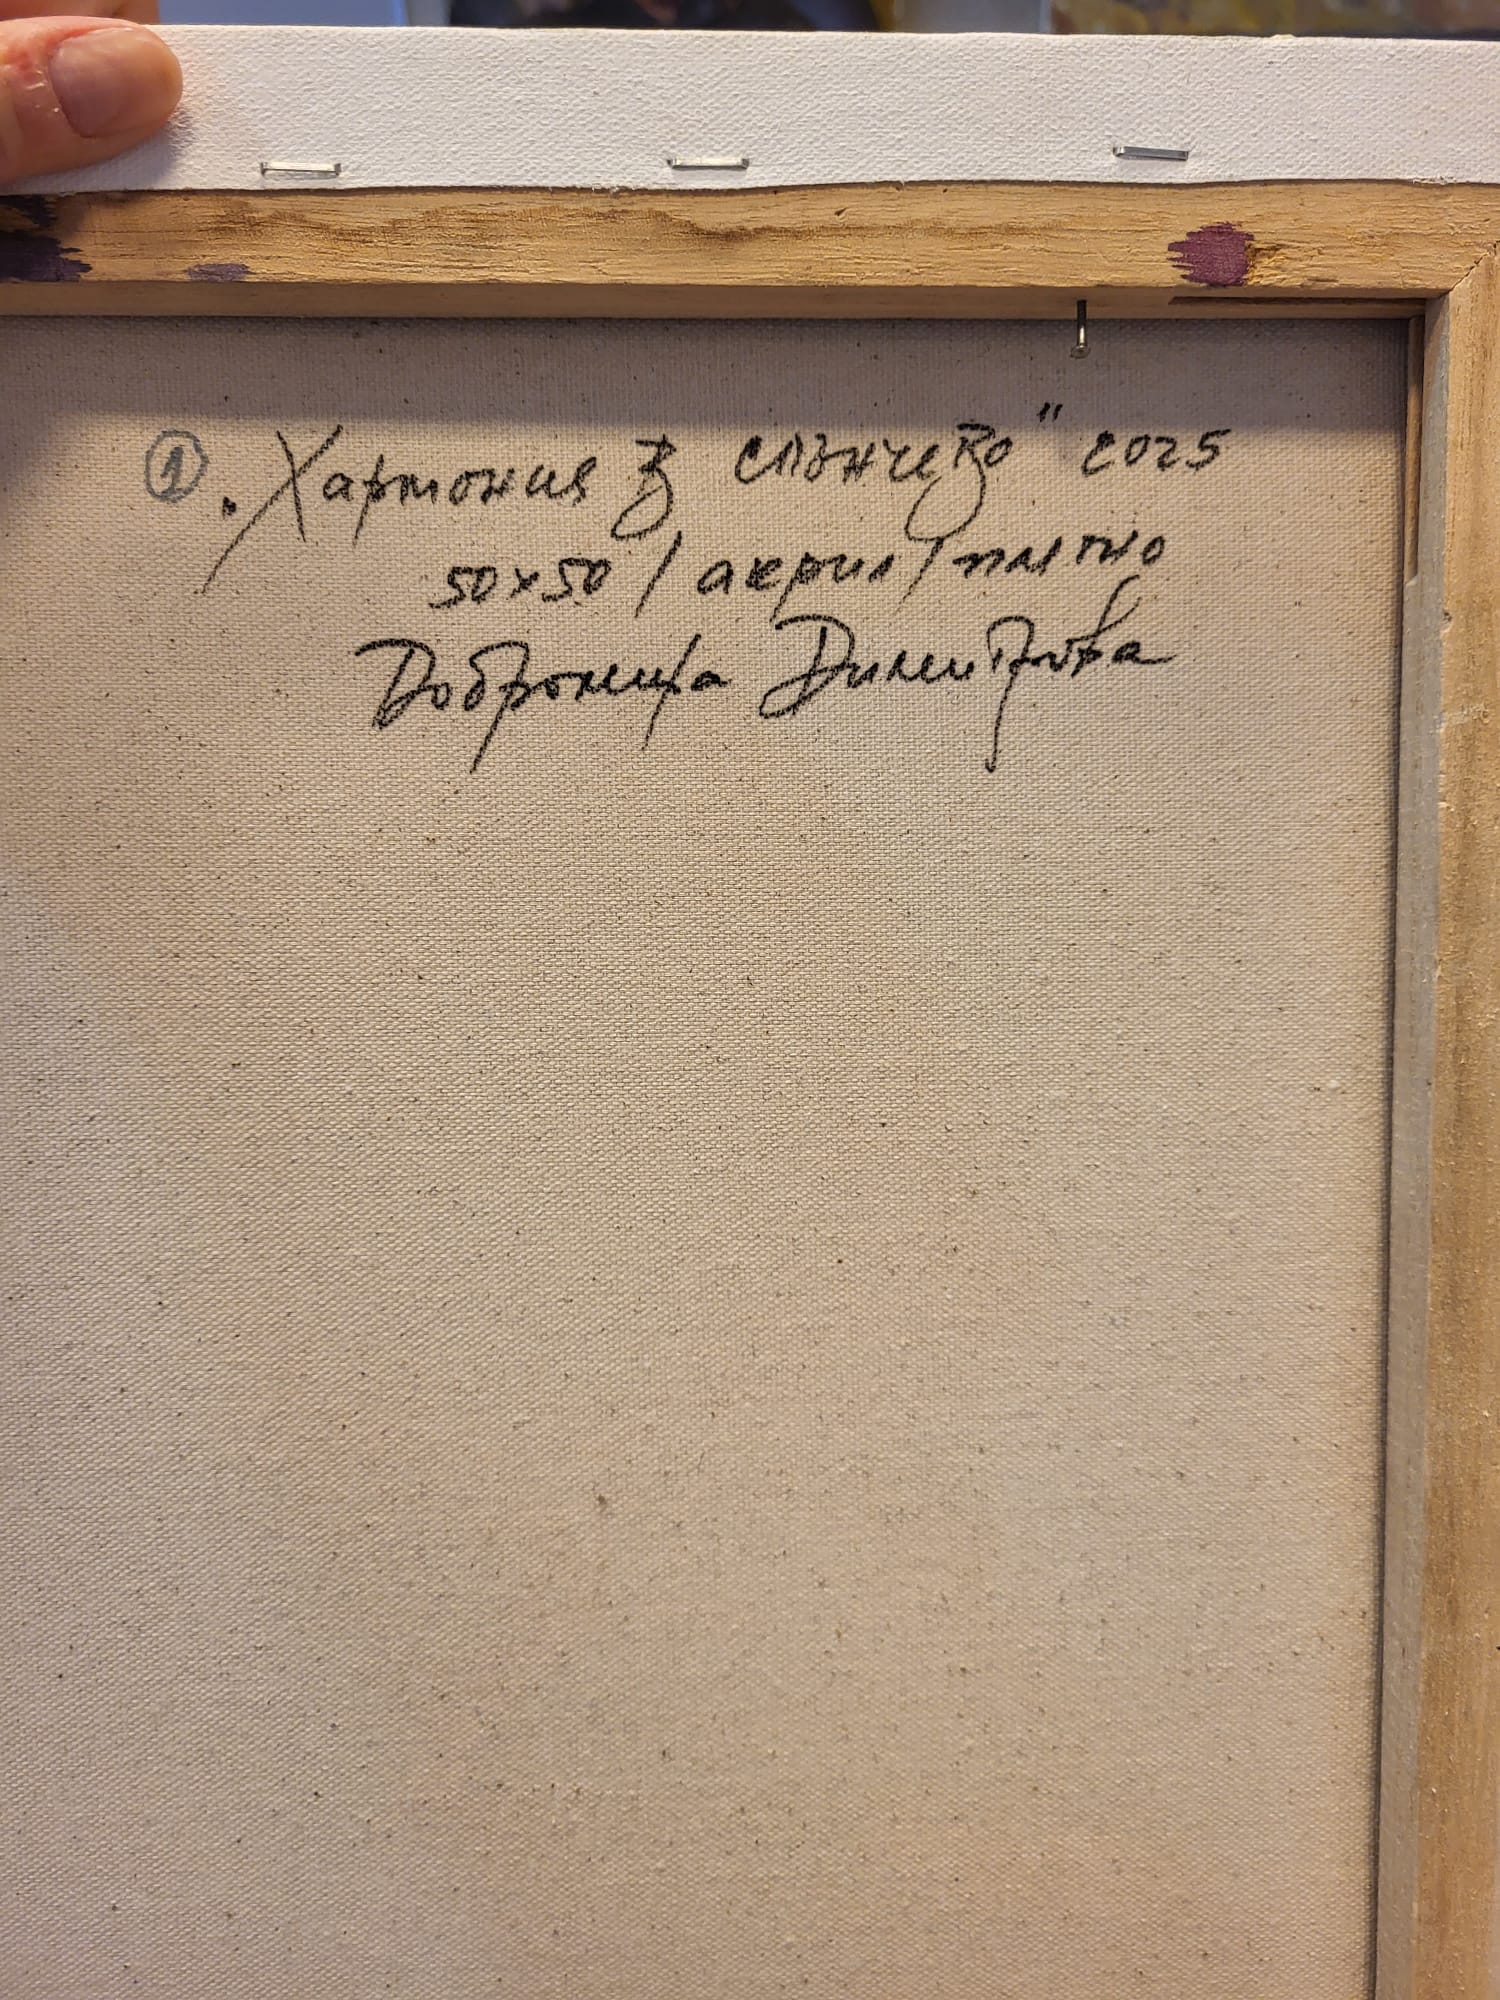 ① „Хармония в слънчево" 2025
50x50 / акрил / платно
Добромира Димитрова